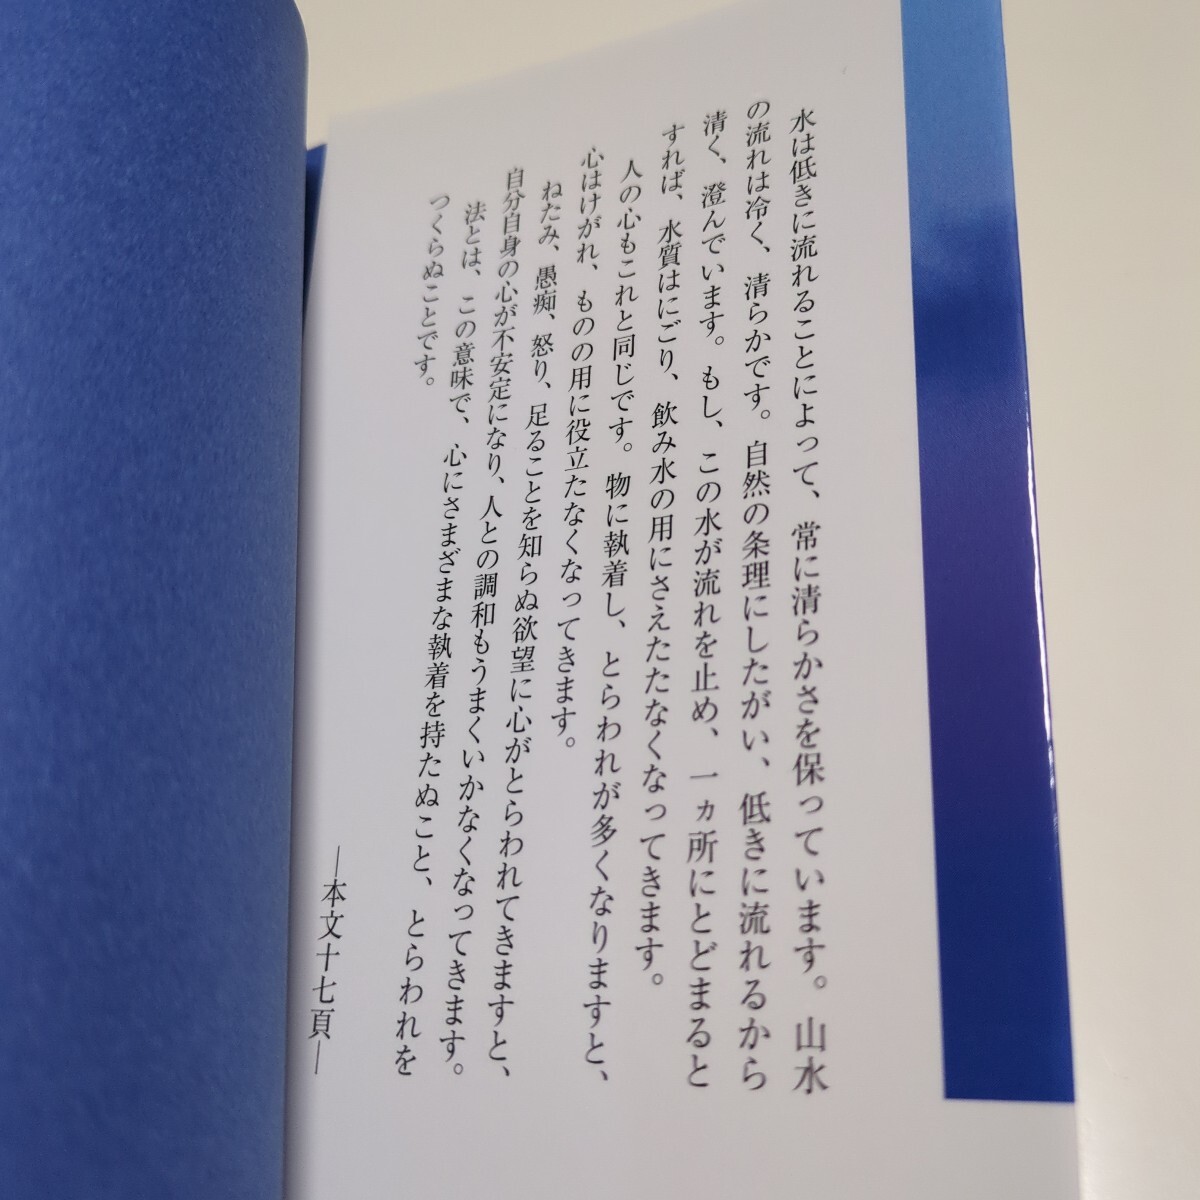 水は低きに流れることによって、常に清らかさを保っています。山水
の流れは冷く、清らかです。自然の条理にしたがい、低きに流れるから
清く、澄んでいます。もし、この水が流れを止め、一ヵ所にとどまると
すれば、水質はにごり、飲み水の用にさえたたなくなってきます。
人の心もこれと同じです。物に執着し、とらわれが多くなりますと、
心はけがれ、ものの用に役立たなくなってきます。
ねたみ、愚痴、怒り、足ることを知らぬ欲望に心がとらわれてきますと、
自分自身の心が不安定になり、人との調和もうまくいかなくなってきます。
法とは、この意味で、心にさまざまな執着を持たぬこと、とらわれを
つくらぬことです。
―本文十七頁―